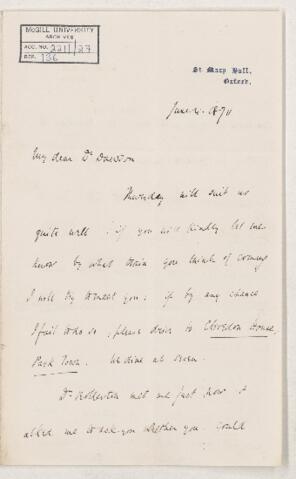 McGILL UNIVERSITY
ARCHIVES
ACC. NO. 2211/27
REF. 136
St Mary Hall,
Oxford.
June 4. 1870
My dear Dr Dawson
Thursday will suit us
quite well: if you will kindly let me
know by what train you think of coming
I will try to meet you: if by any chance
I fail to do so, please drive to Clevedon House,
Park Town. We dine at seven.
Dr Rolleston met me just now &
asked me to ask you whether you could